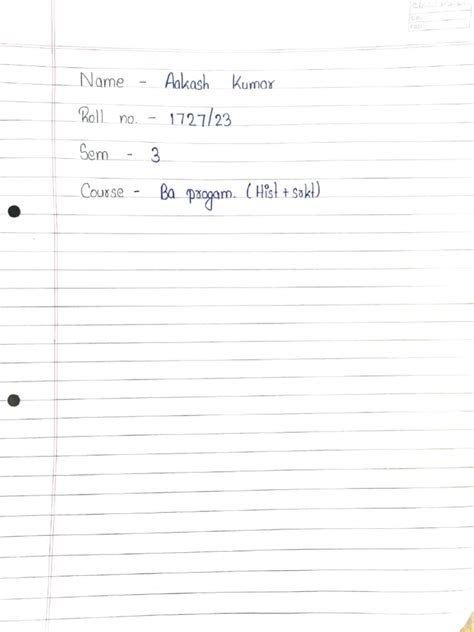 Name - Aakash Kumar
Roll no. - 1727/23
Sem - 3
Course - Ba progam. (Hist + snkt)